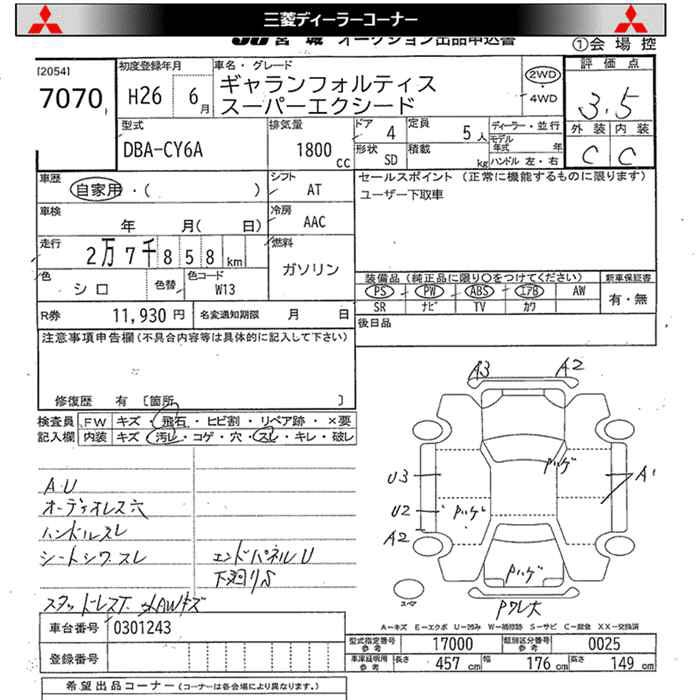 三菱ディーラーコーナー
JU 宮城 オークション出品申込書
①会場控
[2054]
7070
初度登録年月
H26 6月
車名・グレード
ギャランフォルティス
スーパーエクシード
2WD
・4WD
評価点
3.5
外装 内装
C C
型式
DBA-CY6A
排気量
1800 cc
ドア 4
定員 5人
形状 SD
積載 kg
ディーラー・並行
モデル年式 年
ハンドル 左・右
車歴
自家用・( )
シフト AT
車検
年 月( 日)
冷房 AAC
走行
2万7千858km
燃料
ガソリン
色 シロ
色替
色コード W13
R券 11,930円
名変通知期限 月 日
セールスポイント (正常に機能するものに限ります)
ユーザー下取車
装備品 (純正品に限り○をつけてください)
新車保証書
PS PW ABS エアB AW
SR ナビ TV カワ
有・無
後日品
注意事項申告欄(不具合内容等は具体的に記入して下さい)
修復歴 有 [箇所 ]
検査員記入欄
FW キズ・飛石・ヒビ割・リペア跡・×要
内装 キズ・汚レ・コゲ・穴・スレ・キレ・破レ
A.U
オーディオレス穴
ハンドルスレ
シートシワ スレ
エンドパネルU
下廻りS
スタッドレスT
AWキズ
A3 A2
Pハゲ
U3
A1
U2 Pハゲ
A2
Pハゲ
スペア
A－キズ E－エクボ U－凹み W－補修跡 S－サビ C－腐食 XX－交換済
車台番号 0301243
登録番号
型式指定番号 参考 17000
類別区分番号 参考 0025
車庫証明用 参考 長さ 457cm 幅 176cm 高さ 149cm
希望出品コーナー (コーナーは各会場により異なります。)